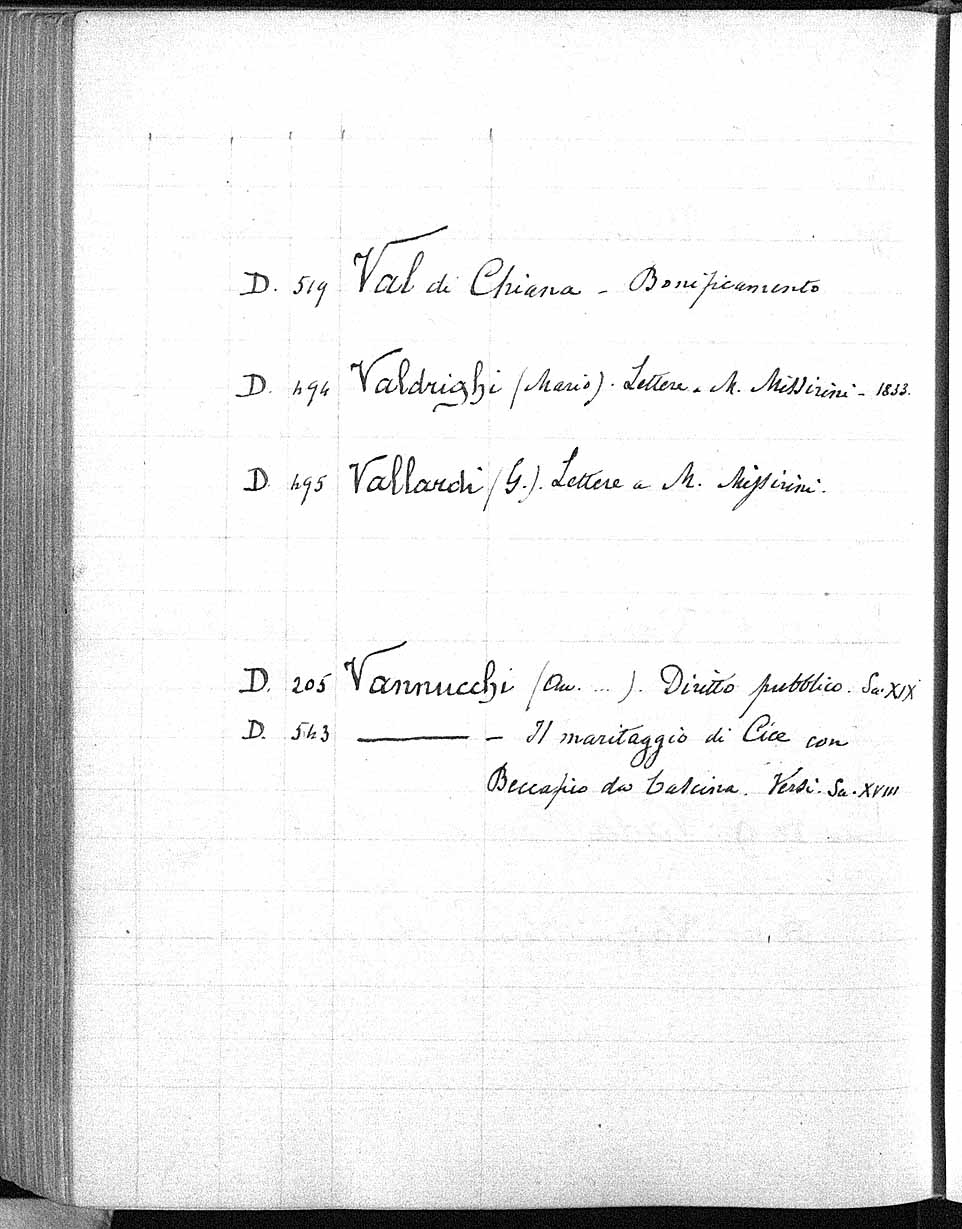 D. 519 Val di Chiana - Bonificamento
D. 494 Valdrighi (Mario). Lettere a M. Missirini - 1833.
D. 495 Vallardi (G.). Lettere a M. Missirini.
D. 205 Vannucchi (An. ...). Diritto pubblico. Sec. XIX
D. 543 ——— - Il maritaggio di Cice con
Beccafico da Cascina. Versi. Sec. XVIII